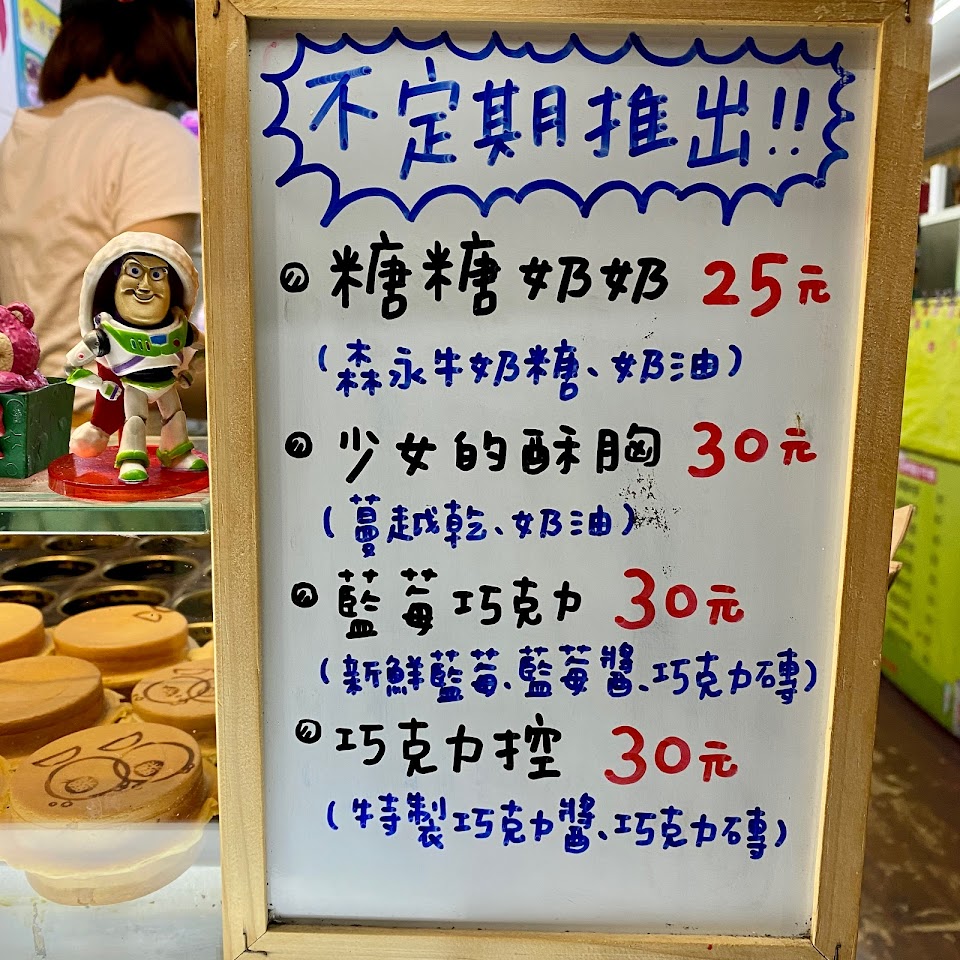 不定期推出!!
糖糖奶奶 25元
(森永牛奶糖、奶油)
少女的酥胸 30元
(蔓越乾、奶油)
藍莓巧克力 30元
(新鮮藍莓、藍莓醬、巧克力磚)
巧克力控 30元
(特製巧克力醬、巧克力磚)